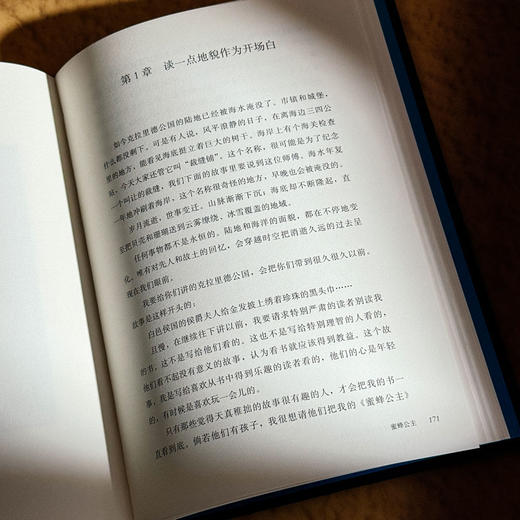 第1章 谈一点地貌作为开场白
如今克拉里德公国的陆地已经被海水淹没了。市镇和城堡,
什么都没剩下,可是有人说,风平浪静的日子,在离海边三四公
里的地方,能看见海底挺立着巨大的树干。海岸上有个海关检查
站,今天大家还管它叫“裁缝铺”,这个名称,很可能是为了纪念
一个叫让的裁缝,我们下面的故事里要说到这位师傅。海水年复
一年地冲刷着海岸,这个名称很奇怪的地方,早晚也会被淹没的。
岁月流逝,世事变迁。山脉渐渐下沉;海底却不断隆起,直
至把贝壳和珊瑚送到云雾缭绕、冰雪覆盖的地域。
任何事物都不是永恒的。陆地和海洋的面貌,都在不停地变
化。唯有对先人和故土的回忆,会穿越时空把消逝久远的过去呈
现在我们眼前。
我要给你们讲的克拉里德公国,会把你们带到很久很久以前。
故事是这样开头的:
白邑侯国的侯爵夫人给金发披上绣着珍珠的黑头巾……
且慢,在继续往下讲以前,我要请求特别严肃的读者别读我
的书,这不是写给他们看的。这也不是写给特别理智的人看的,
他们看不起没有意义的故事,认为看书就应该得到教益。这个故
事,我是写给喜欢从书中得到乐趣的读者看的,他们的心是年轻
的,有时候是喜欢玩一会儿的。
只有那些觉得天真稚拙的故事很有趣的人,才会把我的书一
直看到底。倘若他们有孩子,我很想请他们把我的《蜜蜂公主》
蜜蜂公主 171